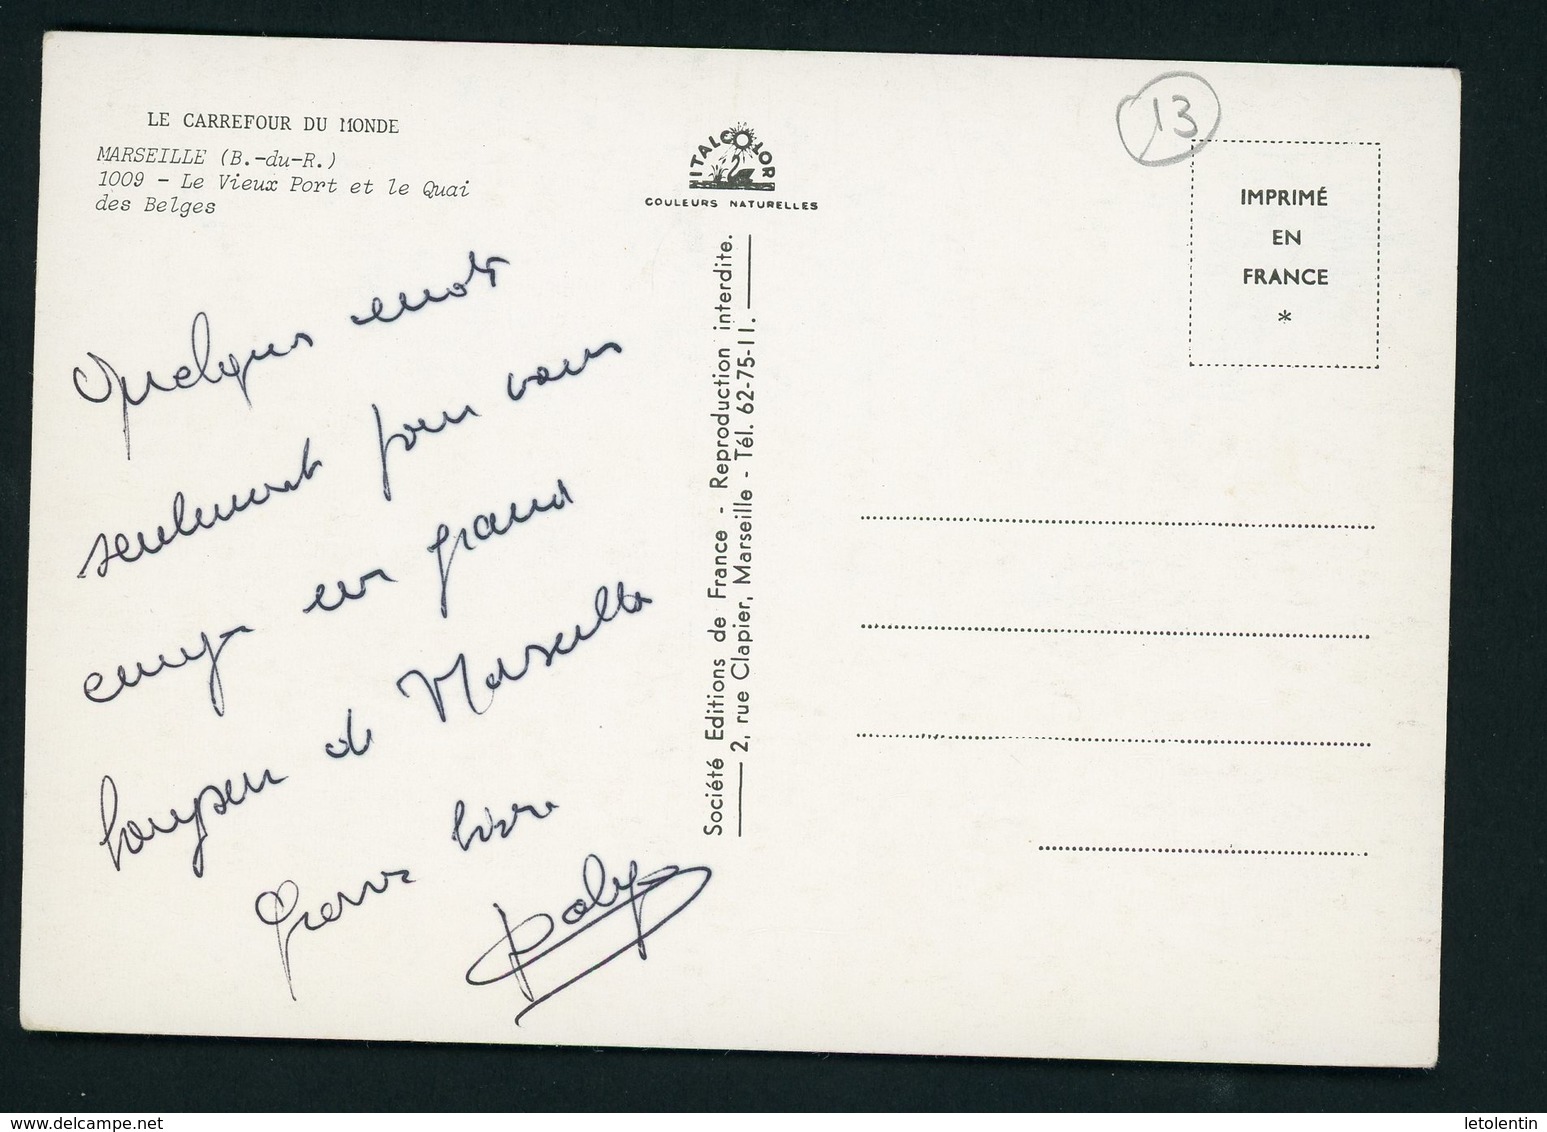 LE CARREFOUR DU MONDE
MARSEILLE (B.-du-R.)
1009 - Le Vieux Port et le Quai
des Belges
ITALCOLOR
COULEURS NATURELLES
13
IMPRIMÉ
EN
FRANCE
*
Société Editions de France - Reproduction interdite.
2, rue Clapier, Marseille - Tél. 62-75-11.
Quelques mots
seulement pour vous
un grand
de Marseille
www.delcampe.net
letolentin